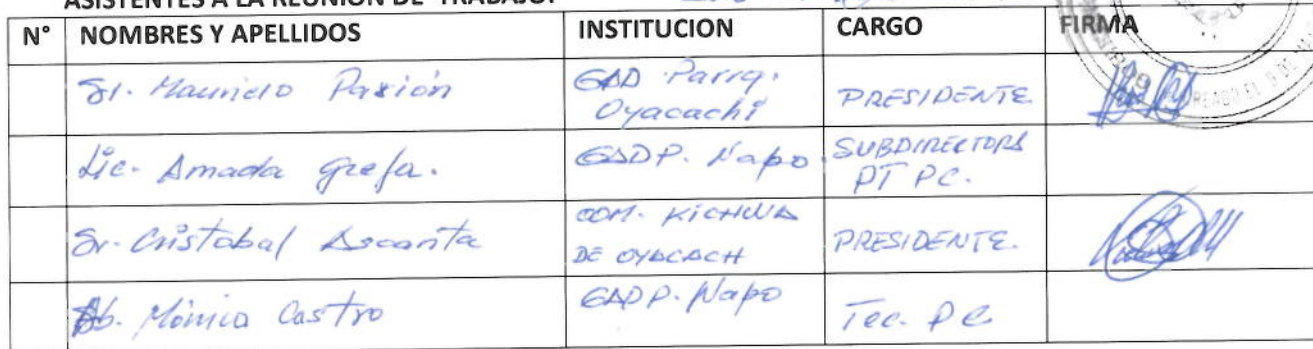 ASISTENTES A LA REUNION DE TRABAJO:
N° NOMBRES Y APELLIDOS INSTITUCION CARGO FIRMA
Sr. Mauricio Parión GAD Parrq. Oyacachi PRESIDENTE
Lic. Amada Grefa. GADP. Napo SUBDIRECTORA PT PC.
Sr. Cristobal Ascanta COM. KICHWA DE OYACACH PRESIDENTE.
Ab. Mónica Castro GADP. Napo Tec. PC